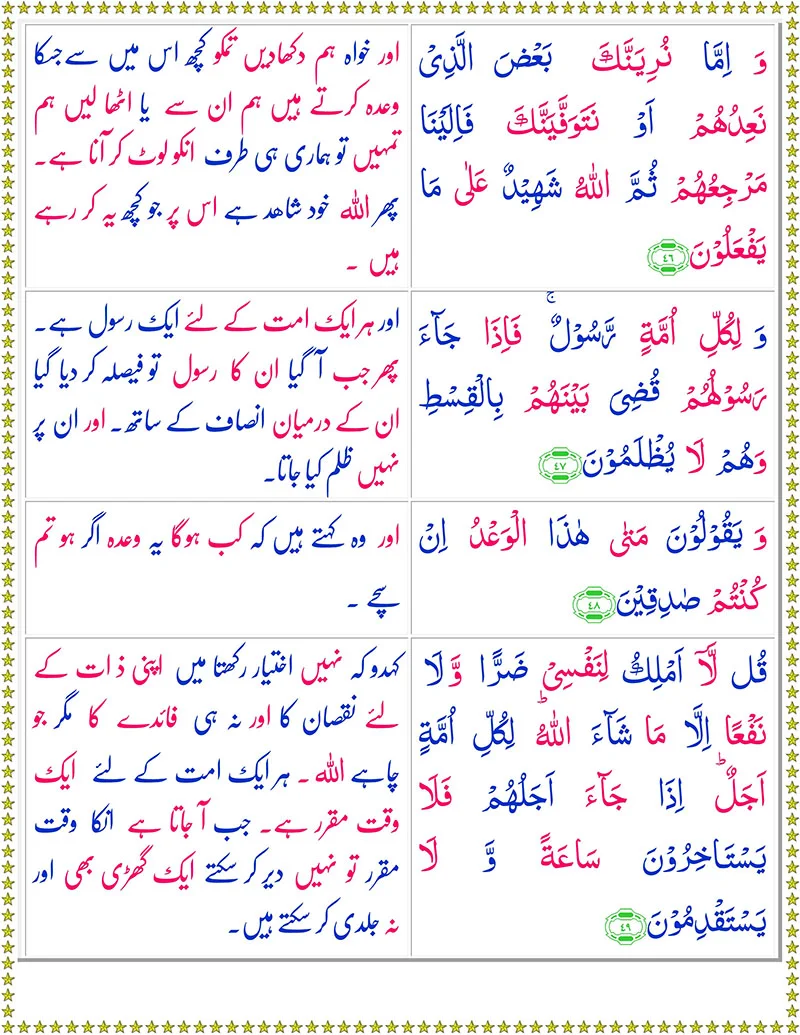 وَ اِمَّا نُرِيَنَّكَ بَعْضَ الَّذِىْ
نَعِدُهُمْ اَوْ نَتَوَفَّيَنَّكَ فَاِلَيْنَا
مَرْجِعُهُمْ ثُمَّ اللّٰهُ شَهِيْدٌ عَلٰى مَا
يَفْعَلُوْنَ ﴿٤٦﴾
اور خواہ ہم دکھادیں تمکو کچھ اس میں سے جسکا
وعدہ کرتے ہیں ہم ان سے یا اٹھا لیں ہم
تمہیں تو ہماری ہی طرف انکو لوٹ کر آنا ہے۔
پھر اللہ خود شاھد ہے اس پر جو کچھ یہ کر رہے
ہیں ۔
وَ لِكُلِّ اُمَّةٍ رَّسُوْلٌ ۚ فَاِذَا جَآءَ
رَسُوْلُهُمْ قُضِىَ بَيْنَهُمْ بِالْقِسْطِ
وَهُمْ لَا يُظْلَمُوْنَ ﴿٤٧﴾
اور ہر ایک امت کے لئے ایک رسول ہے۔
پھر جب آ گیا ان کا رسول تو فیصلہ کر دیا گیا
ان کے درمیان انصاف کے ساتھ۔ اور ان پر
نہیں ظلم کیا جاتا۔
وَ يَقُوْلُوْنَ مَتٰى هٰذَا الْوَعْدُ اِنْ
كُنْتُمْ صٰدِقِيْنَ ﴿٤٨﴾
اور وہ کہتے ہیں کہ کب ہوگا یہ وعدہ اگر ہو تم
سچے ۔
قُل لَّاۤ اَمْلِكُ لِنَفْسِىْ ضَرًّا وَّ لَا
نَفْعًا اِلَّا مَا شَآءَ اللّٰهُ ؕ لِكُلِّ اُمَّةٍ
اَجَلٌ ؕ اِذَا جَآءَ اَجَلُهُمْ فَلَا
يَسْتَاخِرُوْنَ سَاعَةً وَّ لَا
يَسْتَقْدِمُوْنَ ﴿٤٩﴾
کہدو کہ نہیں اختیار رکھتا میں اپنی ذات کے
لئے نقصان کا اور نہ ہی فائدے کا مگر جو
چاہے اللہ ۔ ہر ایک امت کے لئے ایک
وقت مقرر ہے۔ جب آ جاتا ہے انکا وقت
مقرر تو نہیں دیر کر سکتے ایک گھڑی بھی اور
نہ جلدی کر سکتے ہیں۔